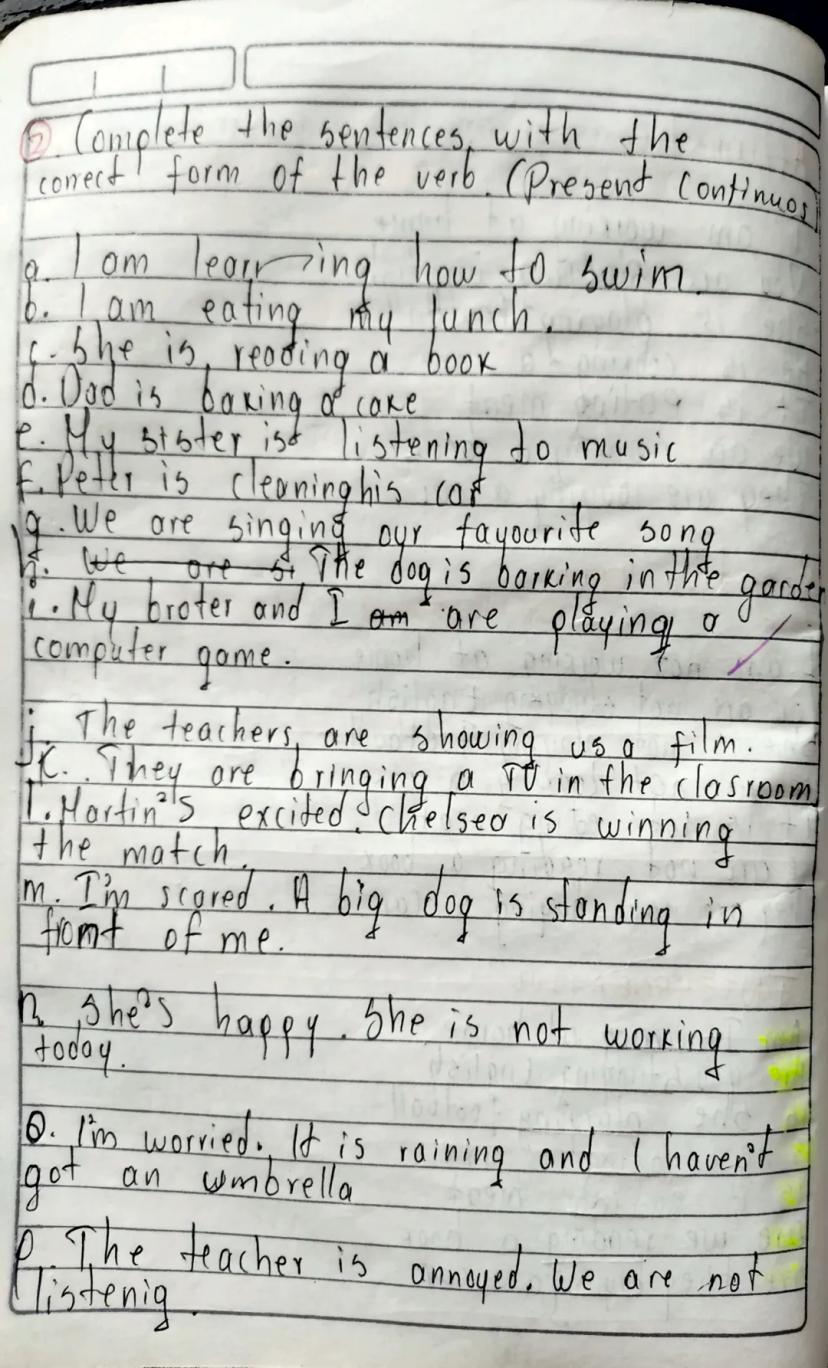 2 Complete the sentences with the
correct form of the verb. (Present Continuos)
a. I am learning how to swim.
b. I am eating my lunch.
c. She is reading a book
d. Dad is baking a cake
e. My sister is listening to music
f. Peter is cleaning his car
g. We are singing our favourite song
h. We are si The dog is barking in the garden
i. My broter and I am are playing a
computer game.
j. The teachers are showing us a film.
k. They are bringing a TV in the clasroom
l. Martin's excited. Chelsea is winning
the match.
m. I'm scared. A big dog is standing in
fromt of me.
n. She's happy. She is not working
today.
O. I'm worried. It is raining and I haven't
got an umbrella
p. The teacher is annoyed. We are not
listenig.